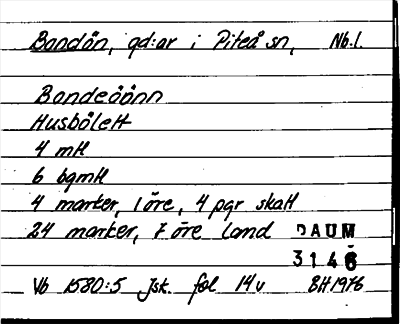 Bondön, gd:ar i Piteå sn, Nb.l.
Bondeöönn
Husbölett
4 mtl
6 bgmtl
4 marker, 1 öre, 4 pgr skatt
24 marker, 7 öre land DAUM
3146
Vb 1580:5 Jsk. fol 14v BH 1976